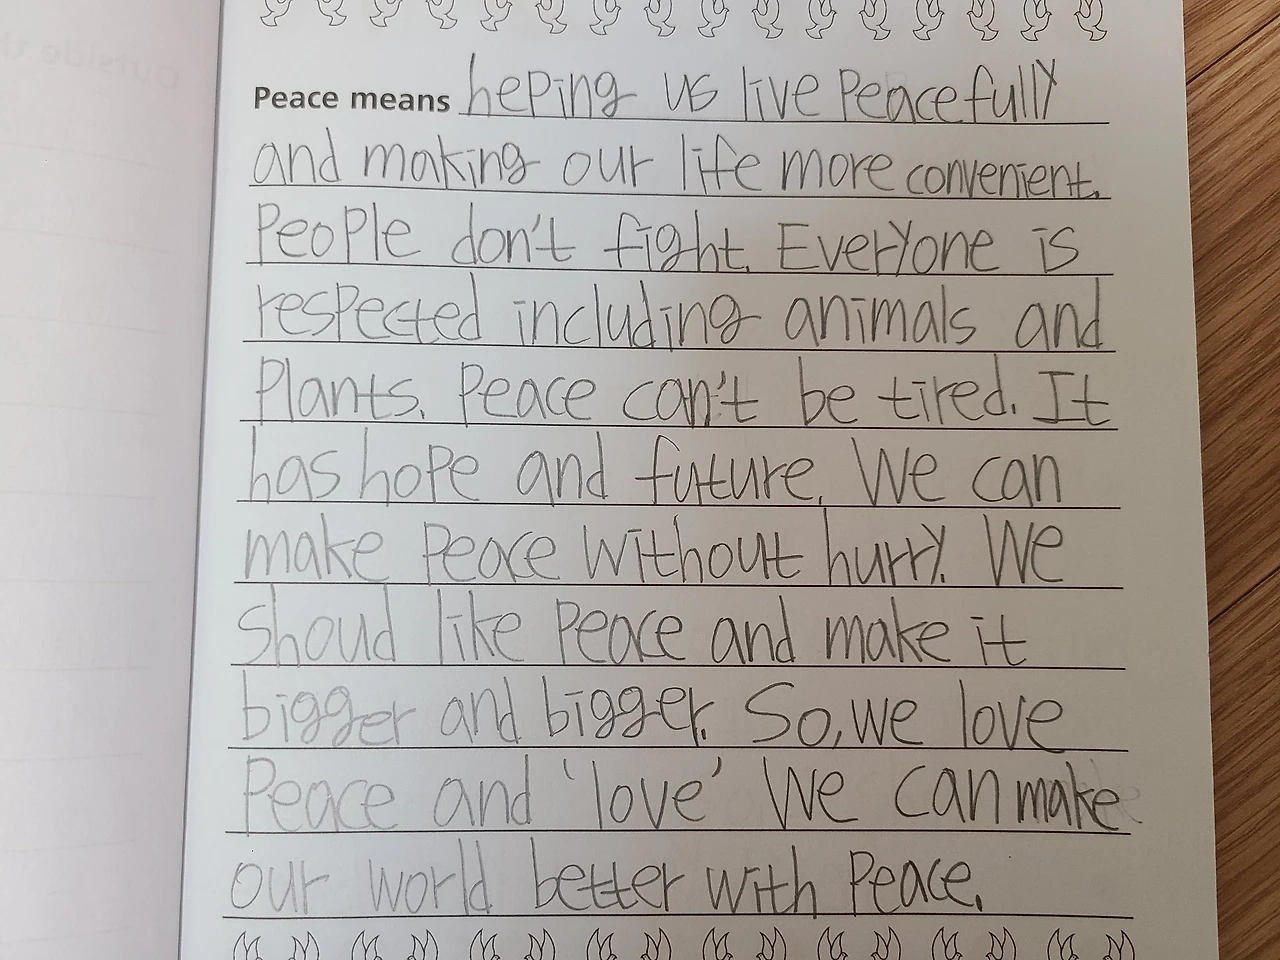 Outside th
Peace means heping us live Peacefully
and making our life more convenient.
People don't fight. Everyone is
respected including animals and
Plants. Peace can't be tired. It
has hope and future. We can
make Peace without hurry. We
Shoud like Peace and make it
bigger and bigger. So, we love
Peace and 'love' We can make
our world better with Peace.